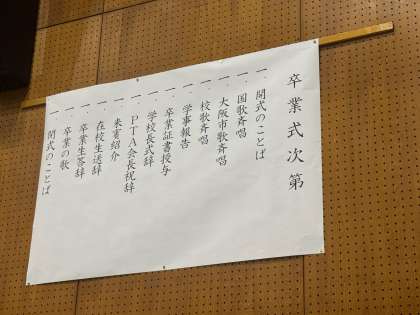 卒業式次第
一、開式のことば
一、国歌斉唱
一、大阪市歌斉唱
一、校歌斉唱
一、学事報告
一、卒業証書授与
一、学校長式辞
一、PTA会長祝辞
一、来賓紹介
一、在校生送辞
一、卒業生答辞
一、卒業の歌
一、閉式のことば